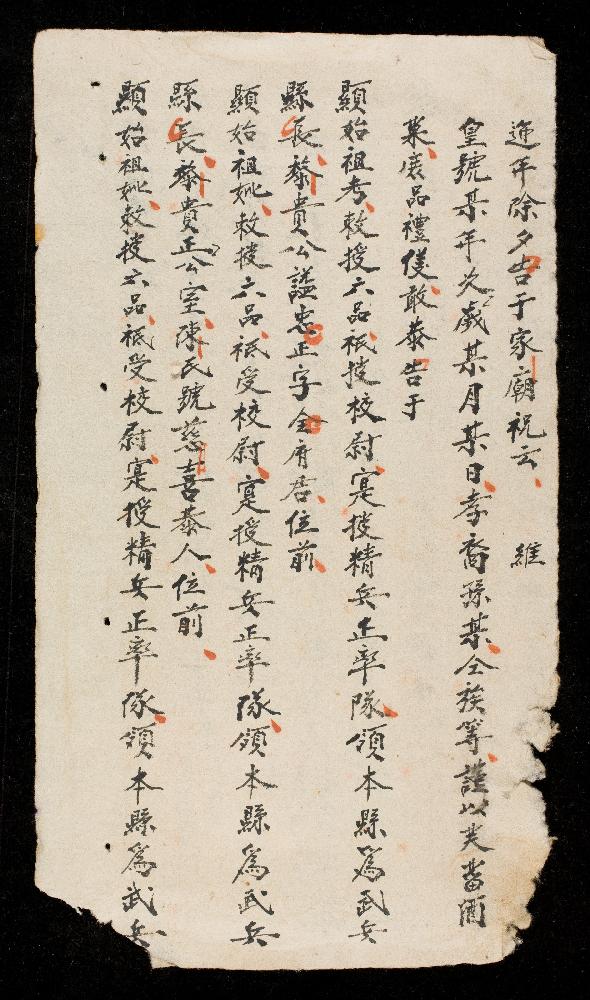 迎年除夕告于家廟祝云 維
皇號某年次歲某月某日孝裔孫某仝族等謹以芙䔲酒
菓庶品禮儀敢恭告于
顯始祖考敕授六品祇授校尉寔授精兵正率隊領本縣為武兵
縣長黎貴公謚忠正字仝府君位前
顯始祖妣敕授六品祇受校尉寔授精兵正率隊領本縣為武兵
縣長黎貴正公室陳氏號慈喜恭人位前
顯始祖妣敕授六品祇受校尉寔授精兵正率隊領本縣為武兵